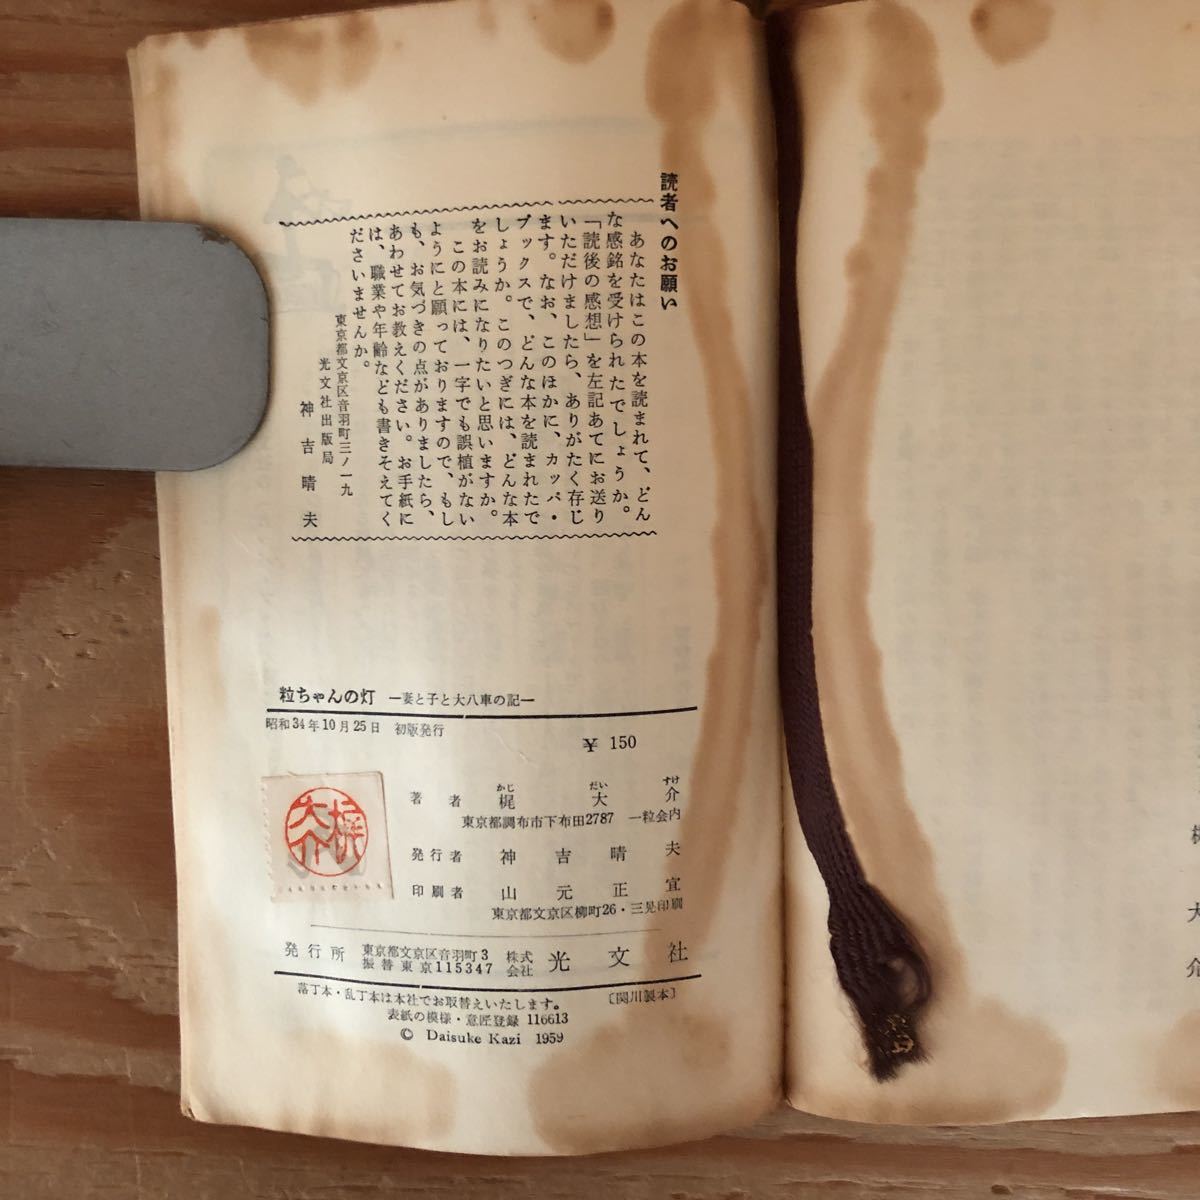 読者へのお願い
あなたはこの本を読まれて、どん
な感銘を受けられたでしょうか。
「読後の感想」を左記あてにお送り
いただけましたら、ありがたく存じ
ます。なお、このほかに、カッパ・
ブックスで、どんな本を読まれたで
しょうか。このつぎには、どんな本
をお読みになりたいと思いますか。
この本には、一字でも誤植がない
ようにと願っておりますので、もし
も、お気づきの点がありましたら、
あわせてお教えください。お手紙に
は、職業や年齢なども書きそえてく
ださいませんか。
東京都文京区音羽町三ノ一九
光文社出版局
神吉晴夫
粒ちゃんの灯 —妻と子と大八車の記—
昭和34年10月25日 初版発行
¥ 150
かじ だい すけ
著者 梶大介
東京都調布市下布田2787 一粒会内
発行者 神吉晴夫
印刷者 山元正宜
東京都文京区柳町26・三晃印刷
発行所 東京都文京区音羽町3 株式 光文社
振替東京115347 会社
落丁本・乱丁本は本社でお取替えいたします。 〔関川製本〕
表紙の模様・意匠登録 116613
© Daisuke Kazi 1959
梶大介
大
介